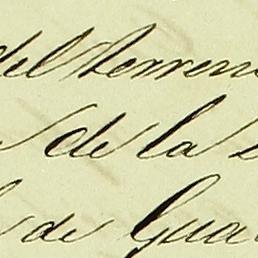 del terren
de la
de Gua